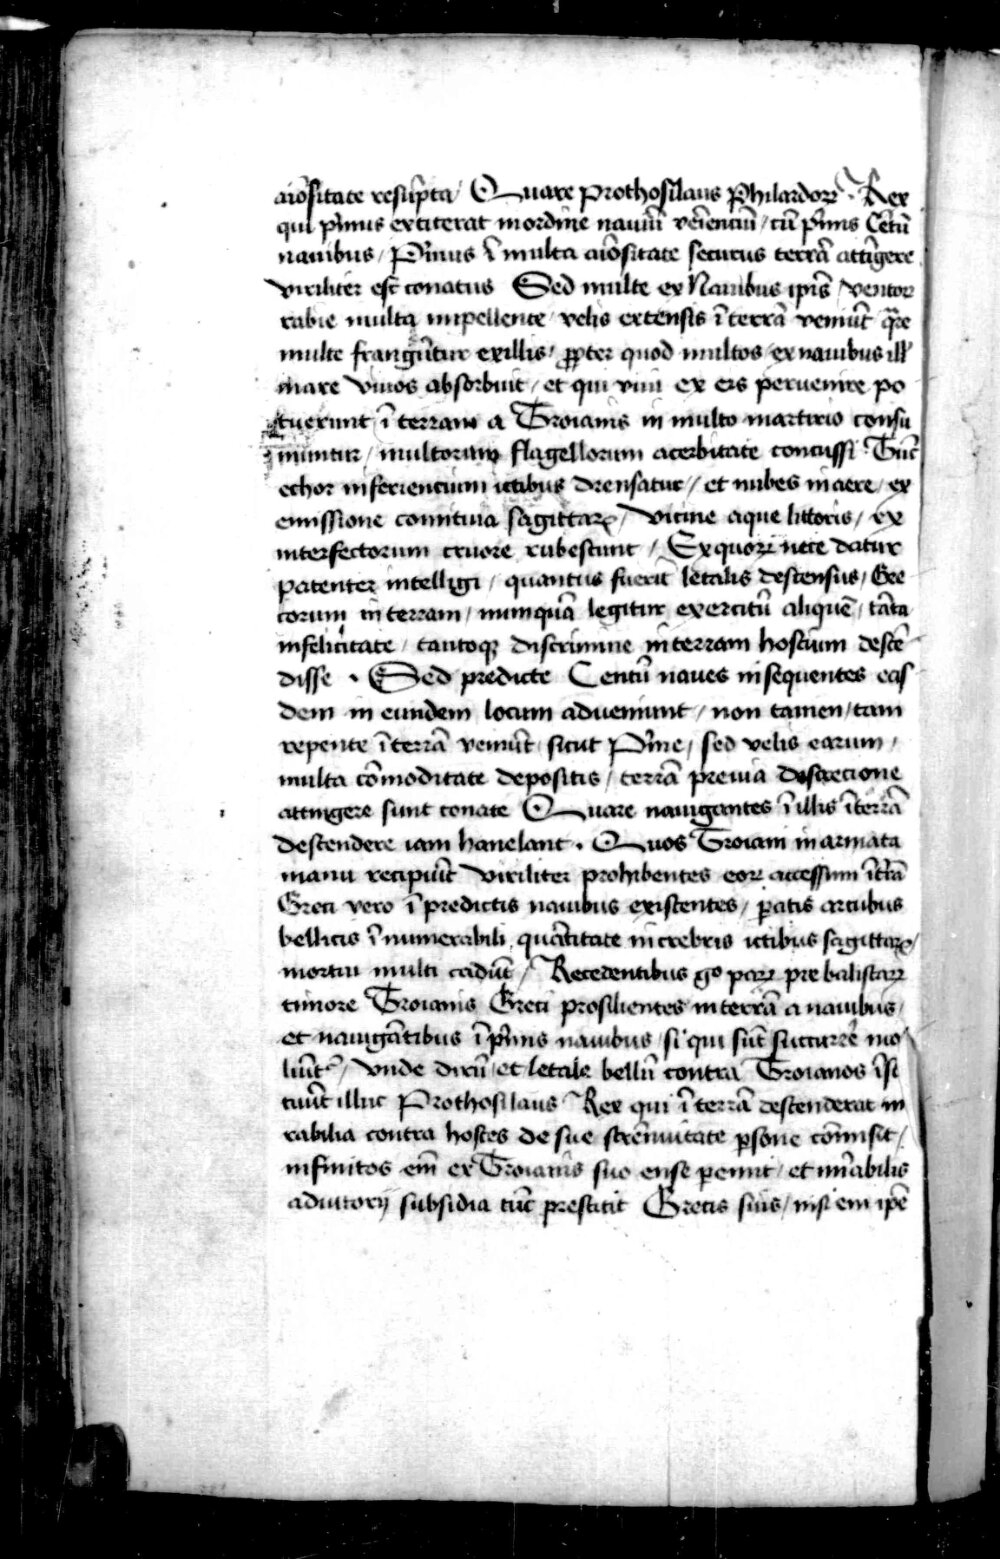 aiõsitate resũpta / Quare Prothosilaus Philardoꝝ · Rex
qui p̃mus extiterat in ordine nauiũ veñientiũ / cũ p̃mis Cẽtũ
nauibus / P̃mus ĩ multa aiõsitate securus terrã attĩgere
viriliter est conatus Sed multe ex Nauibus ip̃is / ventoꝝ
rabie multa impellente velis extensis ĩ terrã veniũt q̃re
multe frangũtur ex illis / ꝓpter quod multos ex nauibus ill'
mare viuos absorbuit / et qui viui ex eis peruenire po
tuerunt ĩ terram a Troianis in multo martirio consu
muntur / multorum flagellorum acerbitate concussi Tũc
echor inferientium ictibus drensatur / et nubes in aere / ex
emissione conutiua sagittaꝝ / vicine aque littoris / ex
interfectorum cruore rubescunt / Ex quoꝝ nece datur
patenter intelligi / quantus fuerit letalis descensus / Gre
corum in terram / numquã legitur exercitũ aliquẽ / tãta
infelicitate / tantoqꝫ discrimine in terram hostium descẽ
disse · Sed predicte Centũ naues insequentes eas
dem in eundem locum adueniunt / non tamen / tam
repente ĩ terrã veniũt sicut P̃me / sed velis earum /
multa cõmoditate depositis / terrã preuia descrecione
attingere sunt conate Quare nauigantes ĩ illis ĩ terrã
descendere iam hanelant · Quos Troiani in armata
manu recipiũt viriliter prohibentes eoꝝ accessum ĩ t̃rã
Greci vero ĩ predictis nauibus existentes / p̱atis arcubus
bellicis ĩnumerabili quãtitate in crebris ictibus sagittaꝝ /
mortui multi cadũt / Recedentibus gº paꝝ pre balistaꝝ
timore Troianis Greci prosilientes in terrã a nauibus /
et nauigãtibus ĩ p̃mis nauibus / si qui sũt succurrẽ mo
liũt᷑ / vnde dirũ et letale bellũ contra Troianos ĩsti
tuũt illuc Prothosilaus Rex qui ĩ terrã descenderat mi
rabilia contra hostes de sue strẽnuitate p̱sone cõmisit /
infinitos em̃ ex Troianis suo ense pemit / et mĩrabilis
adiutorij subsidia tũc prestitit Grecis suis / nisi em ip̃e